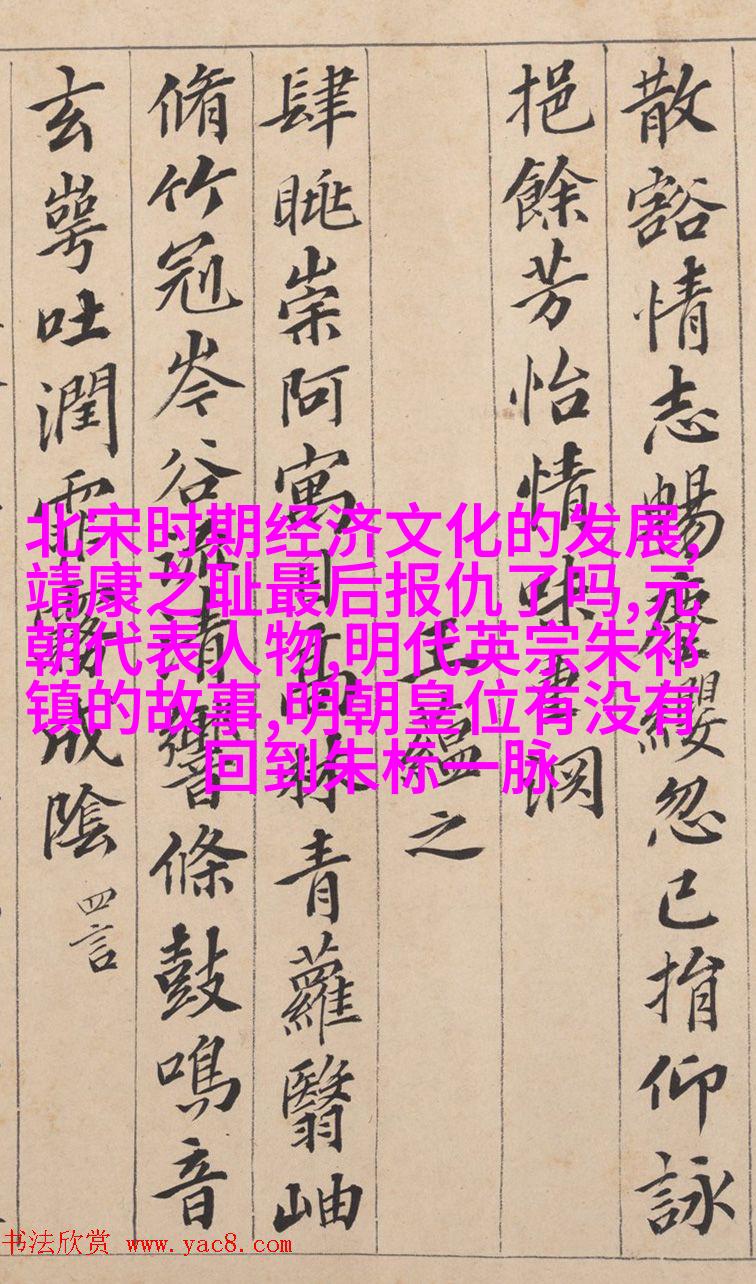 散豁情志暢塵纓忽已捐仰詠
挹餘芳怡情味重淵
王蘊之
肆眺崇阿寓目高林青蘿翳岫
脩竹冠岑谷流清響條鼓鳴音
玄崿吐潤霏霧成陰
四言
北宋时期经济文化的发展,
靖康之耻最后报仇了吗,元
朝代表人物,明代英宗朱祁
镇的故事,明朝皇位有没有
回到朱标一脉
书法欣赏 www.yac8.com